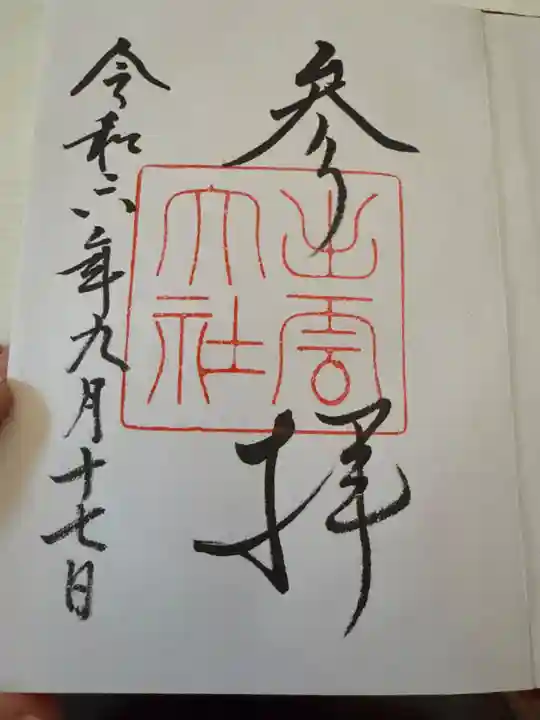 参拝
出雲
大社
令和六年九月十七日